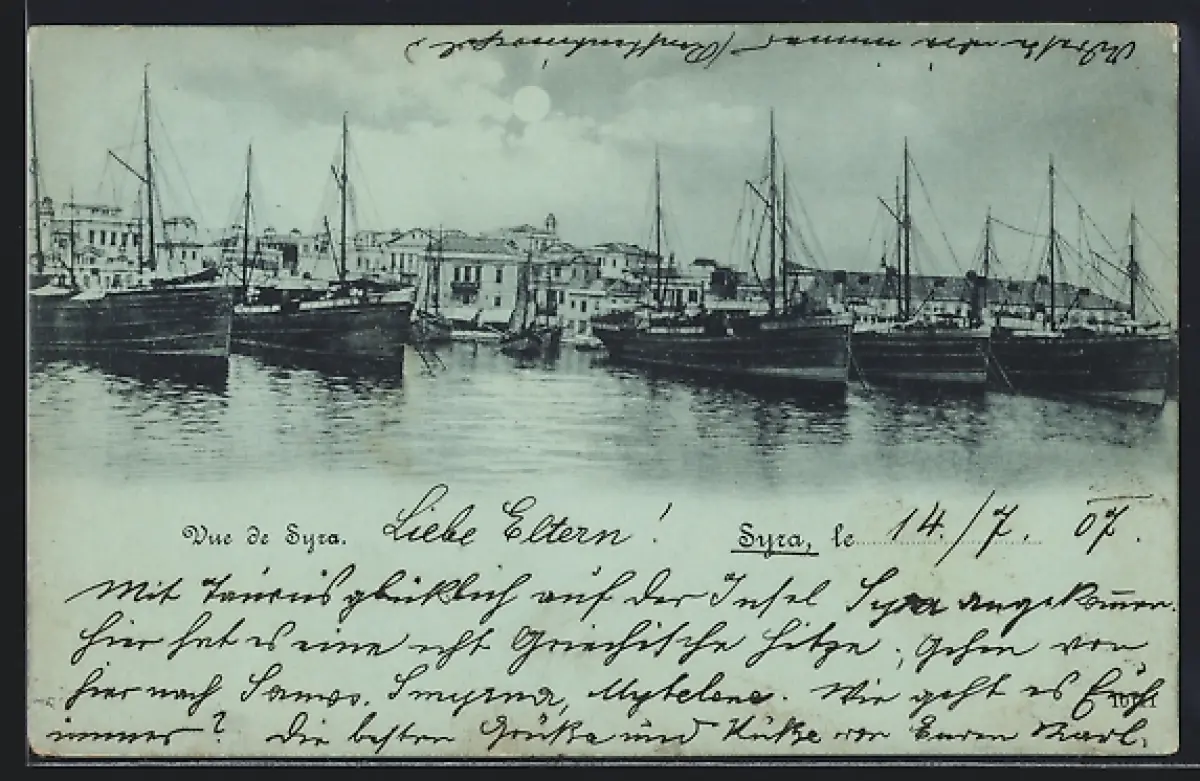 Vue de Syra. Liebe Eltern! Syra, le 14./7. 07.
Mit Taurus glücklich auf der Insel Syra angekommen.
hier hat es eine echt Griechische Hitze, Gehen von
hier nach Samos, Smyrna, Mytelene. Wie geht es Euch
immer? Die besten Grüße und Küße von Euren Karl.